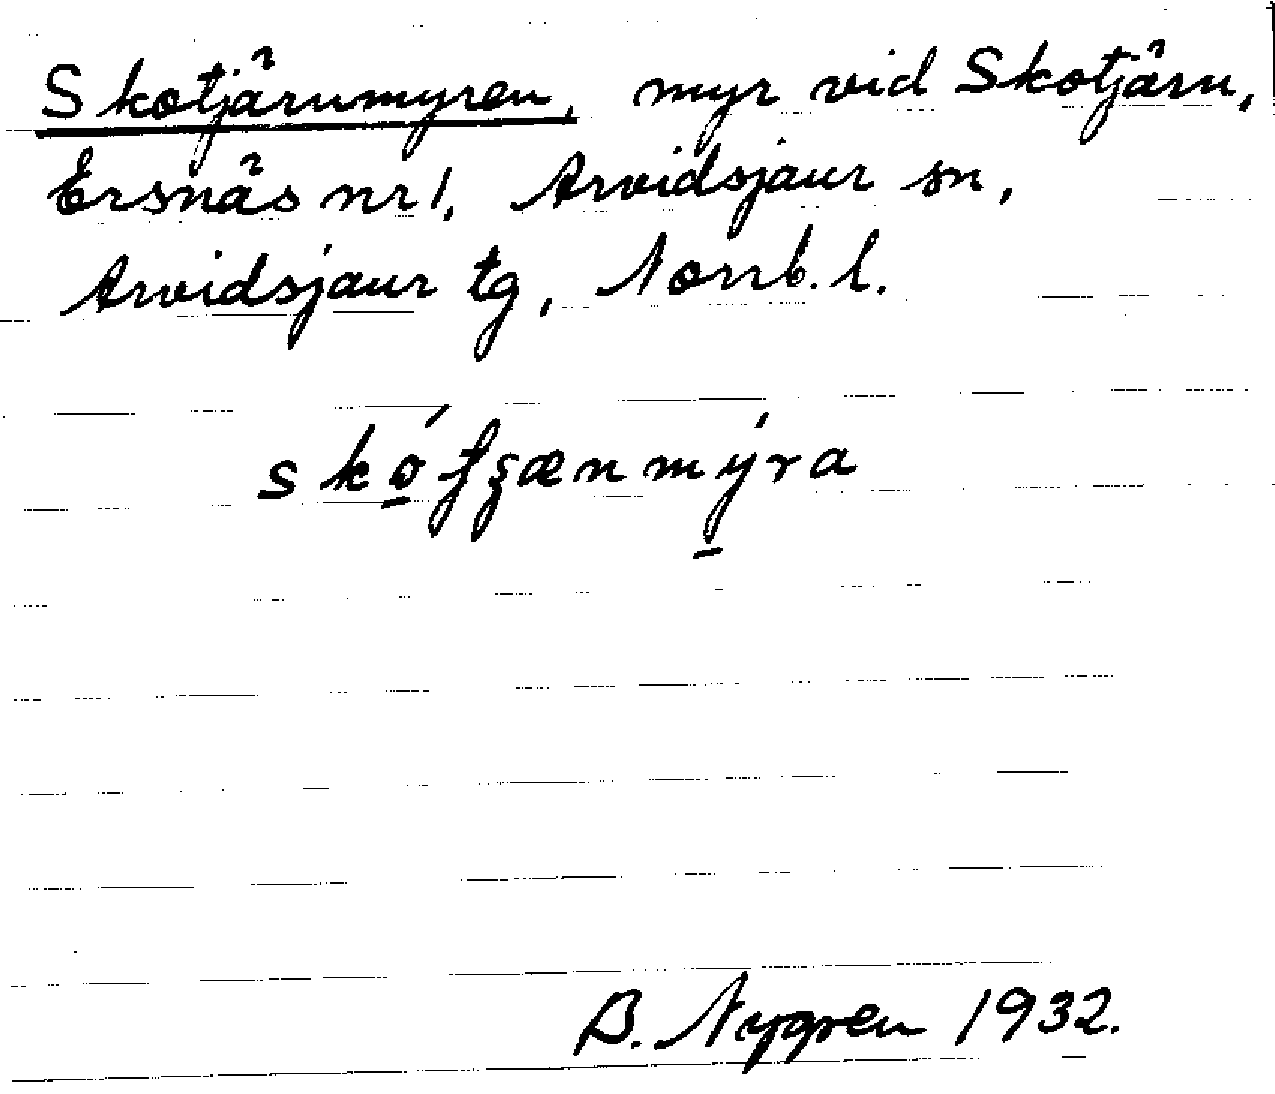 Skotjärnmyren, myr vid Skotjärn,
Ersnäs nr 1, Arvidsjaur sn,
Arvidsjaur tg, Norrb. l.
B. Nygren 1932.